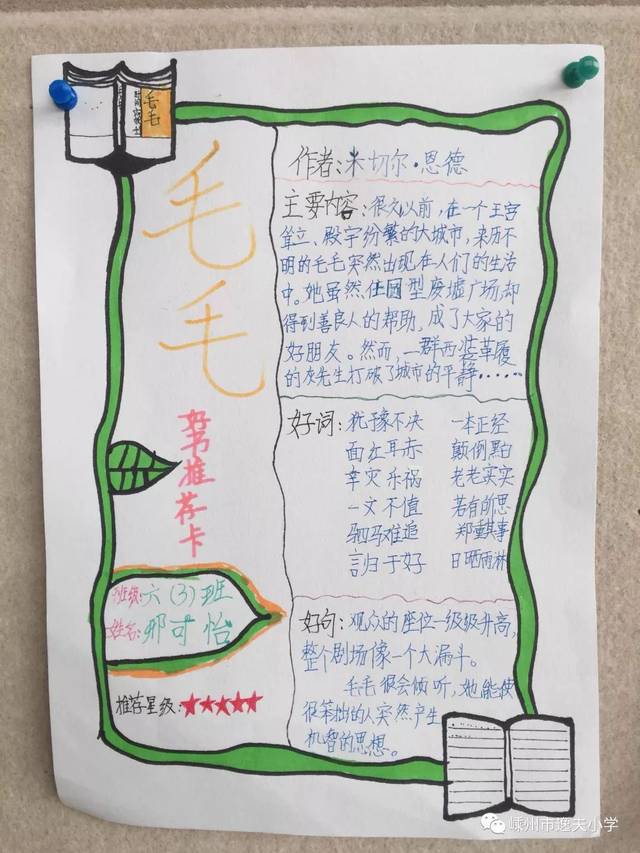 毛毛
毛毛
好书推荐卡
班级:六(3)班
姓名:邢可怡
推荐星级:★★★★★
作者:米切尔·恩德
主要内容:很久以前,在一个王宫
耸立、殿宇纷繁的大城市,来历不
明的毛毛突然出现在人们的生活
中。她虽然住圆型废墟广场,却
得到善良人的帮助,成了大家的
好朋友。然而,一群西装革履
的灰先生打破了城市的平静······
好词:犹豫不决 一本正经
面红耳赤 颠倒黑白
幸灾乐祸 老老实实
一文不值 若有所思
驷马难追 郑重其事
言归于好 日晒雨淋
好句:观众的座位一级级升高,
整个剧场像一个大漏斗。
毛毛很会倾听,她能使
很笨拙的人突然产生
机智的思想。
嵊州市逸夫小学